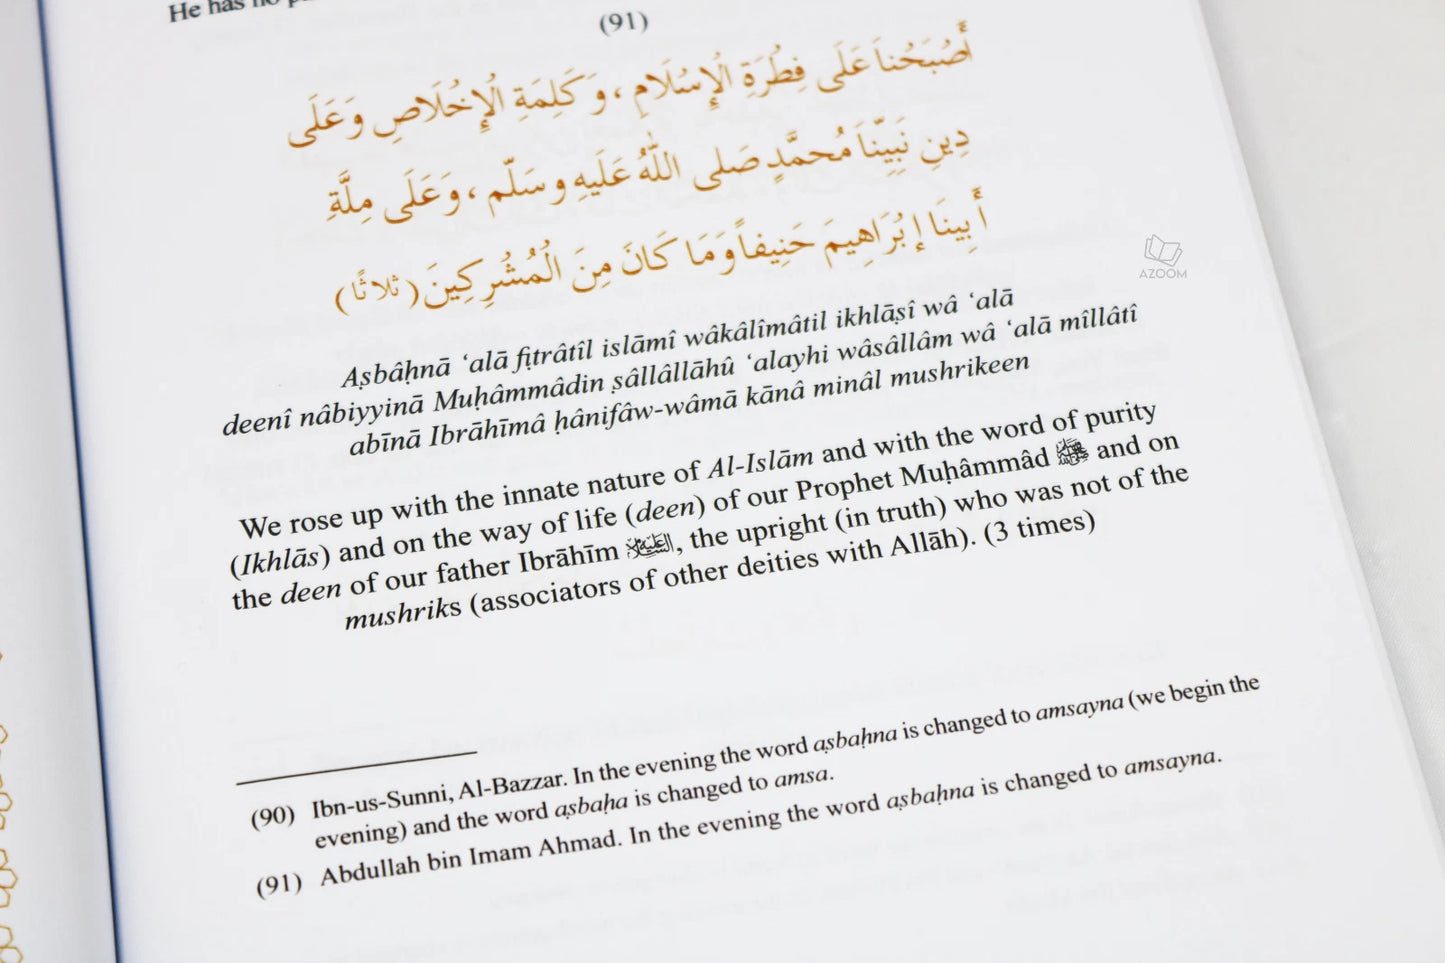 He has no
(91)
أَصْبَحْناَ عَلَى فِطْرَةِ الْإِسْلَامِ ، وَكَلِمَةِ الْإِخْلَاصِ وَعَلَى
دِينِ نَبِيِّنَاَ مُحمَّدٍ صَلى اللهُ عَلَيهِ و سَلّم ، وَعَلَى مِلَّةِ
أَبِينَا إبْرَاهِيمَ حَنِيفاً وَمَا كَانَ مِنَ الْمُشْرِكِينَ (ثلاثًا)
Aṣbâḥnā ‘alā fiṭrâtîl islāmî wâkâlîmâtil ikhlāṣî wâ ‘alā
deenî nâbiyyinā Muḥâmmâdin ṣâllâllāhû ‘alayhi wâsâllâm wâ ‘alā mîllâtî
abīnā Ibrāhīmâ ḥânifâw-wâmā kānâ minâl mushrikeen
We rose up with the innate nature of Al-Islām and with the word of purity
(Ikhlās) and on the way of life (deen) of our Prophet Muḥâmmâd ﷺ and on
the deen of our father Ibrāhīm عليه السلام, the upright (in truth) who was not of the
mushriks (associators of other deities with Allāh). (3 times)
(90) Ibn-us-Sunni, Al-Bazzar. In the evening the word aṣbaḥna is changed to amsayna (we begin the
evening) and the word aṣbaḥa is changed to amsa.
(91) Abdullah bin Imam Ahmad. In the evening the word aṣbaḥna is changed to amsayna.
AZOOM